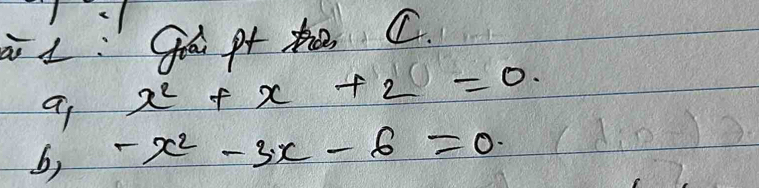 ài 1: Giải pt trên C.
a, x² + x + 2 = 0.
b, -x² - 3x - 6 = 0.